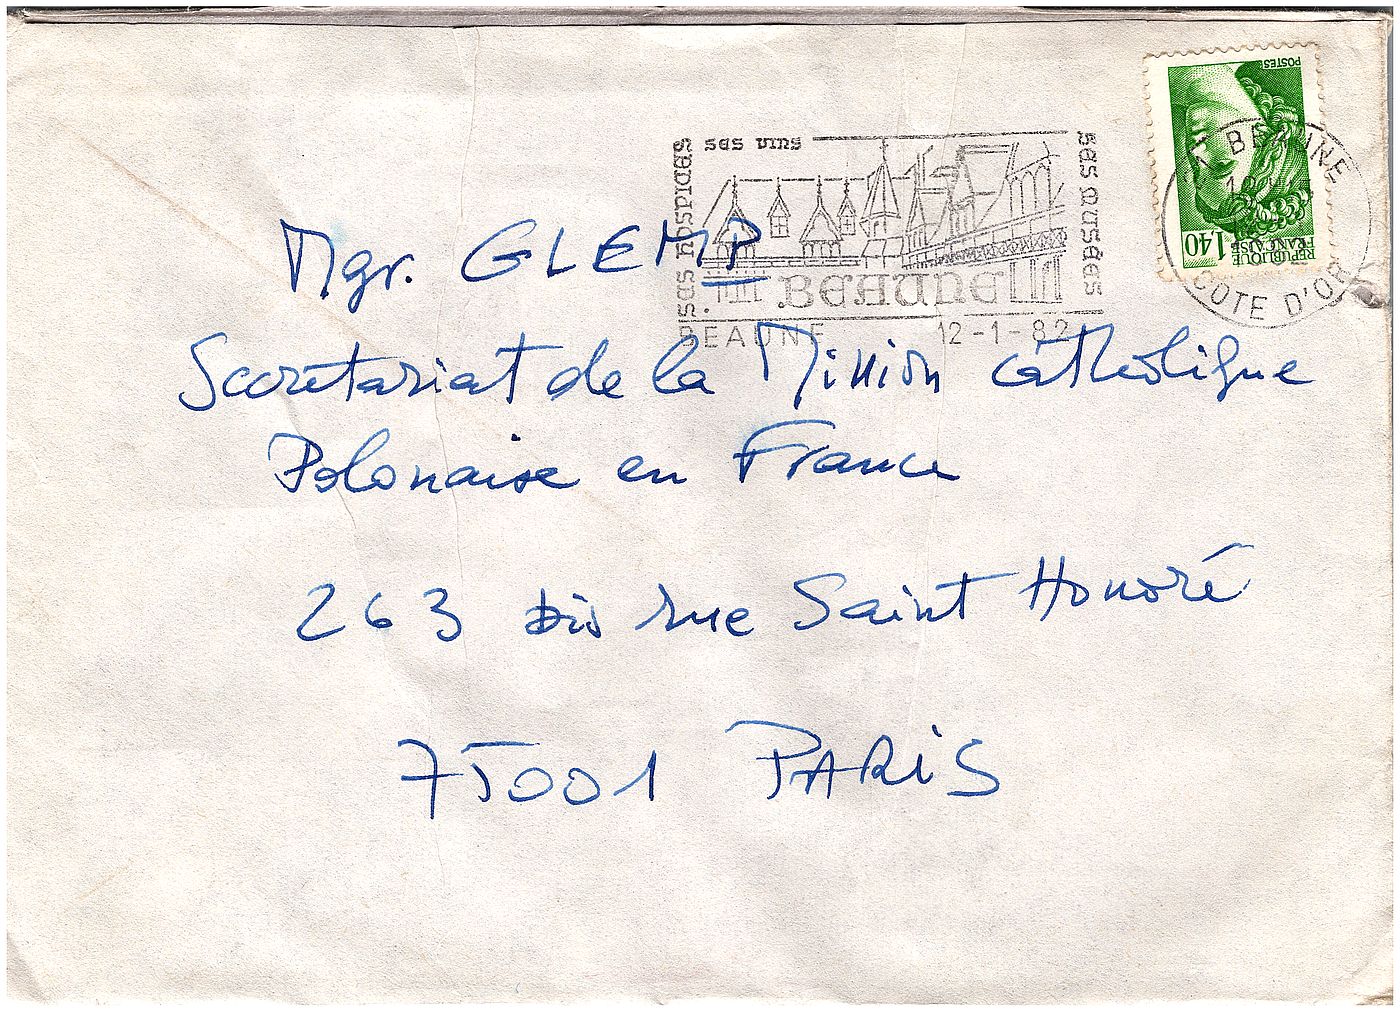 POSTES
1,40
REPUBLIQUE
FRANÇAISE
BEAUNE
COTE D'OR
SES HOSPICES
SES VINS
SES MUSÉES
BEAUNE
BEAUNE 12-1-82
Mgr. GLEMP
Secrétariat de la Mission Catholique
Polonaise en France
263 bis rue Saint Honoré
75001 PARIS